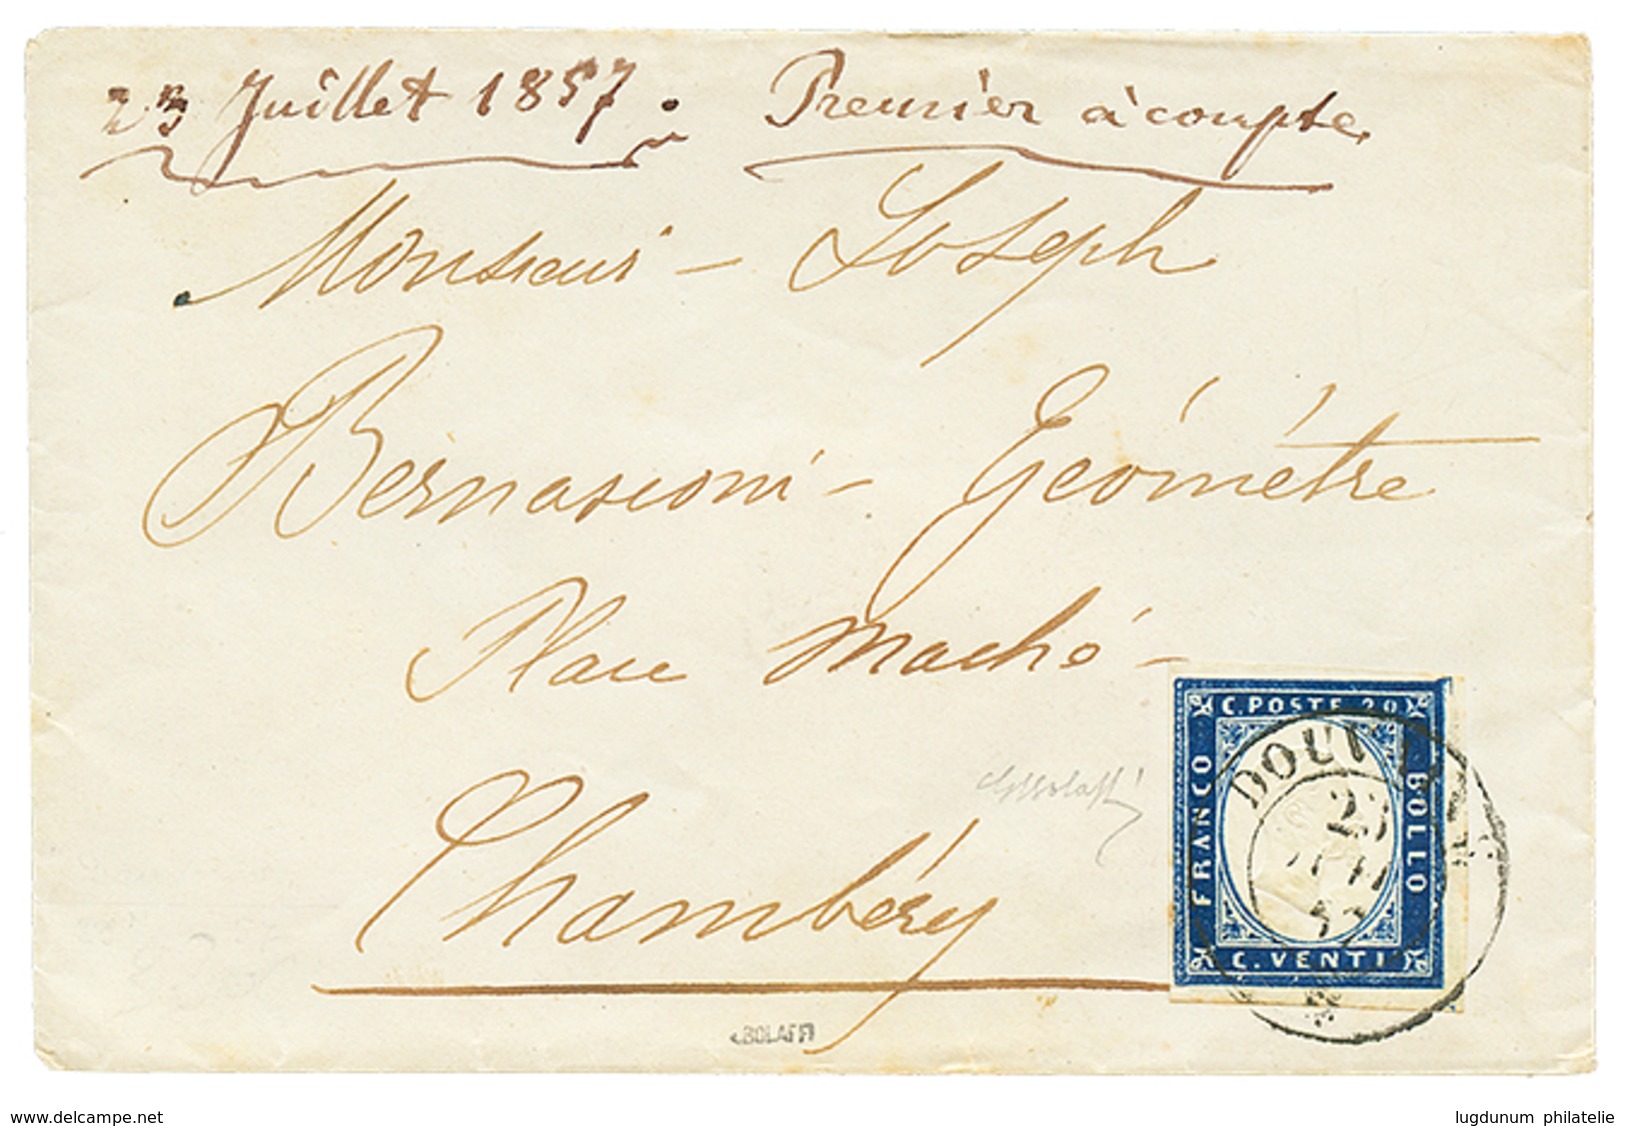 23 Juillet 1857. Premier à compte.
Monsieur - Joseph
Bernasconi - Géométre
Place Maché -
Chambéry
C. POSTE 20
FRANCO
BOLLO
C. VENTI
23
57
BOLAFFI
www.delcampe.net
lugdunum philatelie